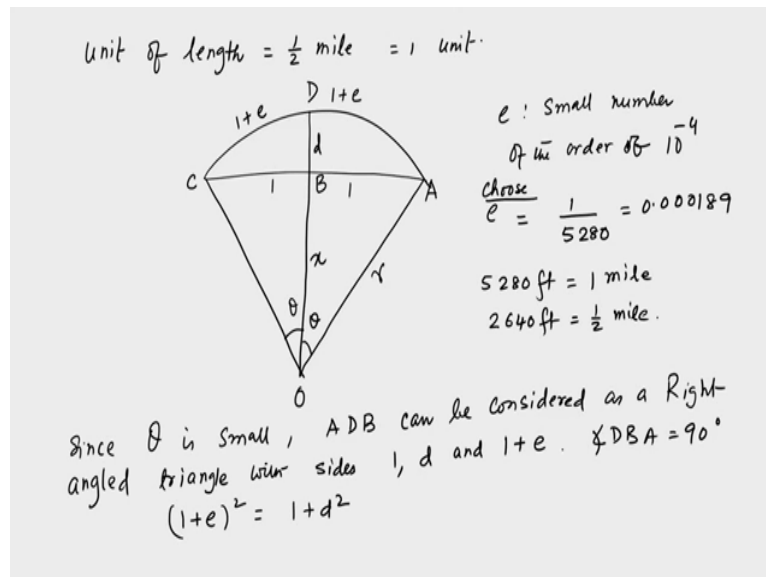 unit of length = 1/2 mile = 1 unit.
D 1+e
1+e
d
e : Small number
of the order of 10^-4
C 1 B 1 A
Choose
e = 1/5280 = 0.000189
x
r
5280 ft = 1 mile
2640 ft = 1/2 mile.
θ θ
O
Since θ is small, ADB can be considered as a Right-
angled triangle with sides 1, d and 1+e. ∡DBA = 90°
(1+e)² = 1+d²